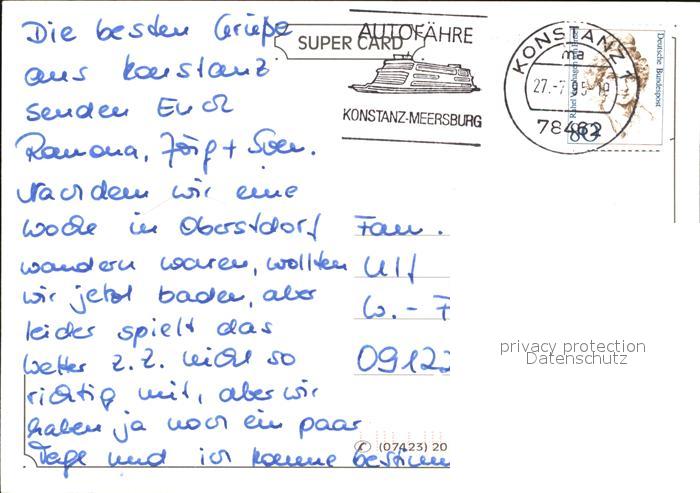 Die besten Grüße
aus Konstanz
senden Euch
Ramona, Jörg + Sven.
Nachdem wir eine
Woche in Oberstdorf
wandern waren, wollten
wir jetzt baden, aber
leider spielt das
Wetter z.Z. nicht so
richtig mit, aber wir
haben ja noch ein paar
Tage und ich komme bestimm
SUPER CARD
AUTOFÄHRE
KONSTANZ-MEERSBURG
KONSTANZ 1
ma
27.-7.95-19
78462
Deutsche Bundespost
80
Fam.
Ulf
W.-F
09122
privacy protection
Datenschutz
(07423) 20